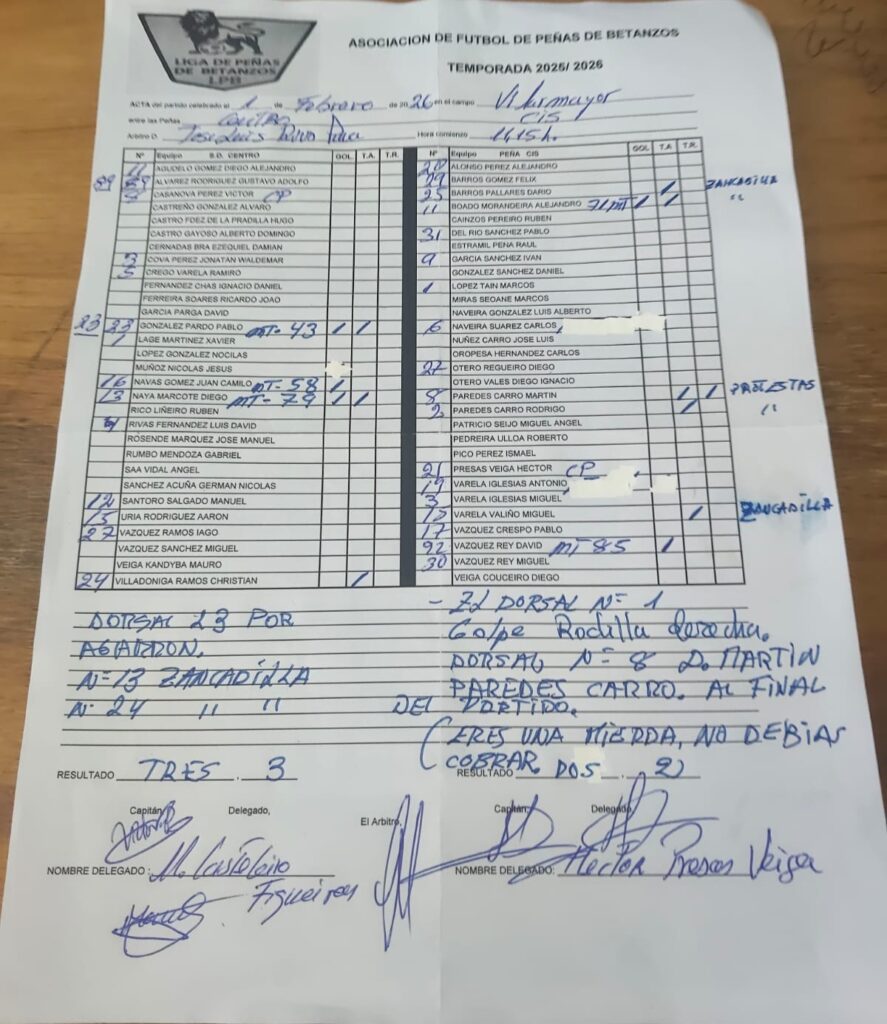 LIGA DE PEÑAS
DE BETANZOS
LPB
ASOCIACION DE FUTBOL DE PEÑAS DE BETANZOS
TEMPORADA 2025/ 2026
ACTA del partido celebrado el 1 de Febrero de 2026 en el campo Vilarmayor
entre las Peñas CENTRO CIS
Arbitro D. Jose Luis Hora comienzo 16.15h.
Nº Equipo S.D. CENTRO GOL. T.A. T.R.
11 AGUDELO GOMEZ DIEGO ALEJANDRO
89 ALVAREZ RODRIGUEZ GUSTAVO ADOLFO
CASANOVA PEREZ VICTOR CP
CASTREÑO GONZALEZ ALVARO
CASTRO FDEZ DE LA PRADILLA HUGO
CASTRO GAYOSO ALBERTO DOMINGO
CERNADAS BRA EZEQUIEL DAMIAN
3 COVA PEREZ JONATAN WALDEMAR
5 CREGO VARELA RAMIRO
FERNANDEZ CHAS IGNACIO DANIEL
FERREIRA SOARES RICARDO JOAO
GARCIA PARGA DAVID
23 23 GONZALEZ PARDO PABLO MT-43 / /
1 LAGE MARTINEZ XAVIER
LOPEZ GONZALEZ NOCILAS
MUÑOZ NICOLAS JESUS
16 NAVAS GOMEZ JUAN CAMILO MT-58 /
13 NAYA MARCOTE DIEGO MT-79 / /
RICO LIÑEIRO RUBEN
RIVAS FERNANDEZ LUIS DAVID
ROSENDE MARQUEZ JOSE MANUEL
RUMBO MENDOZA GABRIEL
SAA VIDAL ANGEL
SANCHEZ ACUÑA GERMAN NICOLAS
12 SANTORO SALGADO MANUEL
15 URIA RODRIGUEZ AARON
27 VAZQUEZ RAMOS IAGO
VAZQUEZ SANCHEZ MIGUEL
VEIGA KANDYBA MAURO
24 VILLADONIGA RAMOS CHRISTIAN /
Nº Equipo PEÑA CIS GOL T.A T.R.
20 ALONSO PEREZ ALEJANDRO
29 BARROS GOMEZ FELIX
25 BARROS PALLARES DARIO / ZANCADILLA
11 BOADO MORANDEIRA ALEJANDRO 71 MT / / " "
CAINZOS PEREIRO RUBEN
31 DEL RIO SANCHEZ PABLO
ESTRAMIL PENA RAUL
9 GARCIA SANCHEZ IVAN
GONZALEZ SANCHEZ DANIEL
1 LOPEZ TAIN MARCOS
MIRAS SEOANE MARCOS
NAVEIRA GONZALEZ LUIS ALBERTO
6 NAVEIRA SUAREZ CARLOS
NUÑEZ CARRO JOSE LUIS
OROPESA HERNANDEZ CARLOS
27 OTERO REGUEIRO DIEGO
OTERO VALES DIEGO IGNACIO
8 PAREDES CARRO MARTIN / / PROTESTAS
2 PAREDES CARRO RODRIGO / " "
PATRICIO SEIJO MIGUEL ANGEL
PEDREIRA ULLOA ROBERTO
PICO PEREZ ISMAEL
21 PRESAS VEIGA HECTOR CP
19 VARELA IGLESIAS ANTONIO
3 VARELA IGLESIAS MIGUEL
VARELA VALIÑO MIGUEL / ZANCADILLA
17 VAZQUEZ CRESPO PABLO
92 VAZQUEZ REY DAVID MT 85 /
30 VAZQUEZ REY MIGUEL
VEIGA COUCEIRO DIEGO
DORSAL 23 POR
AGARRON.
Nº 13 ZANCADILLA
Nº 24 " "
- EL DORSAL Nº 1
Golpe Rodilla derecha.
DORSAL Nº 8 D. MARTIN
PAREDES CARRO. AL FINAL
DEL PARTIDO.
(ERES UNA MIERDA, NO DEBIAS
COBRAR.
RESULTADO TRES . 3
RESULTADO DOS . 2)
Capitán, Delegado,
El Arbitro,
Capitán, Delegado,
NOMBRE DELEGADO : M. Casteleiro
Figueiras
NOMBRE DELEGADO: Hector Presas Veiga